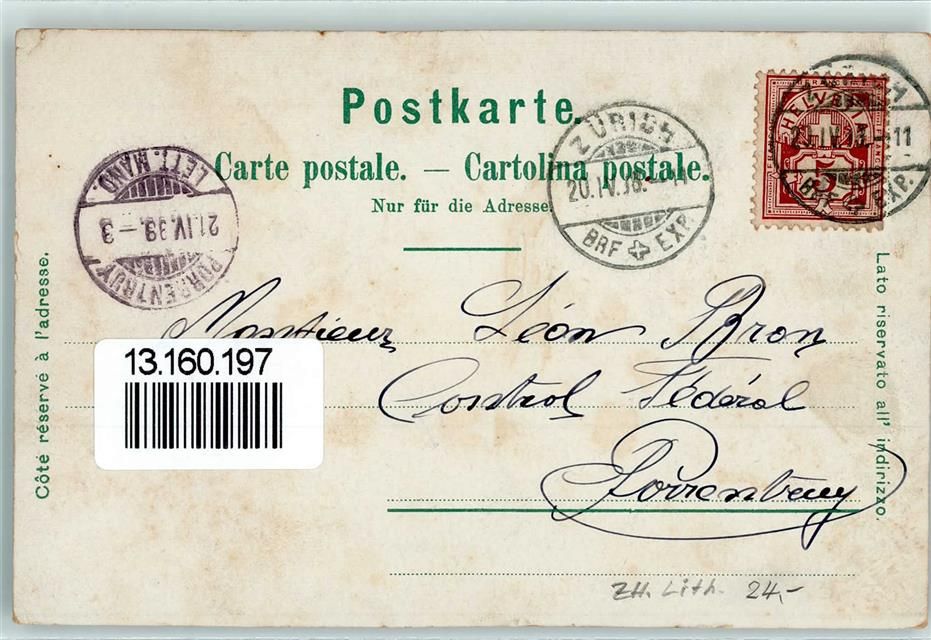 Postkarte.
Carte postale. — Cartolina postale.
Nur für die Adresse.
LETT. MAND.
21.IV.98.-3
PORRENTRUY
ZÜRICH
20.IV.98.-11
BRF EXP.
HELVETIA
5
Côté réservé à l'adresse.
Lato riservato all' indirizzo.
Monsieur Léon Bron
Control Fédéral
Porrentruy
13.160.197
ZH. Lith. 24,-